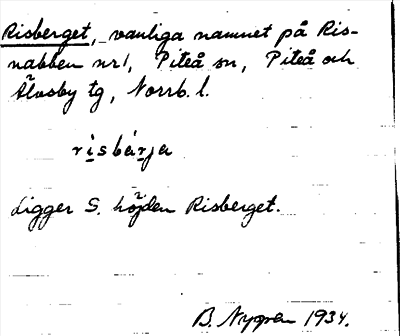 Risberget, vanliga namnet på Ris-
nabben nr 1, Piteå sn, Piteå och
Älvsby tg, Norrb. l.
risbárja
Ligger S. höjden Risberget.
B. Nygren 1934.